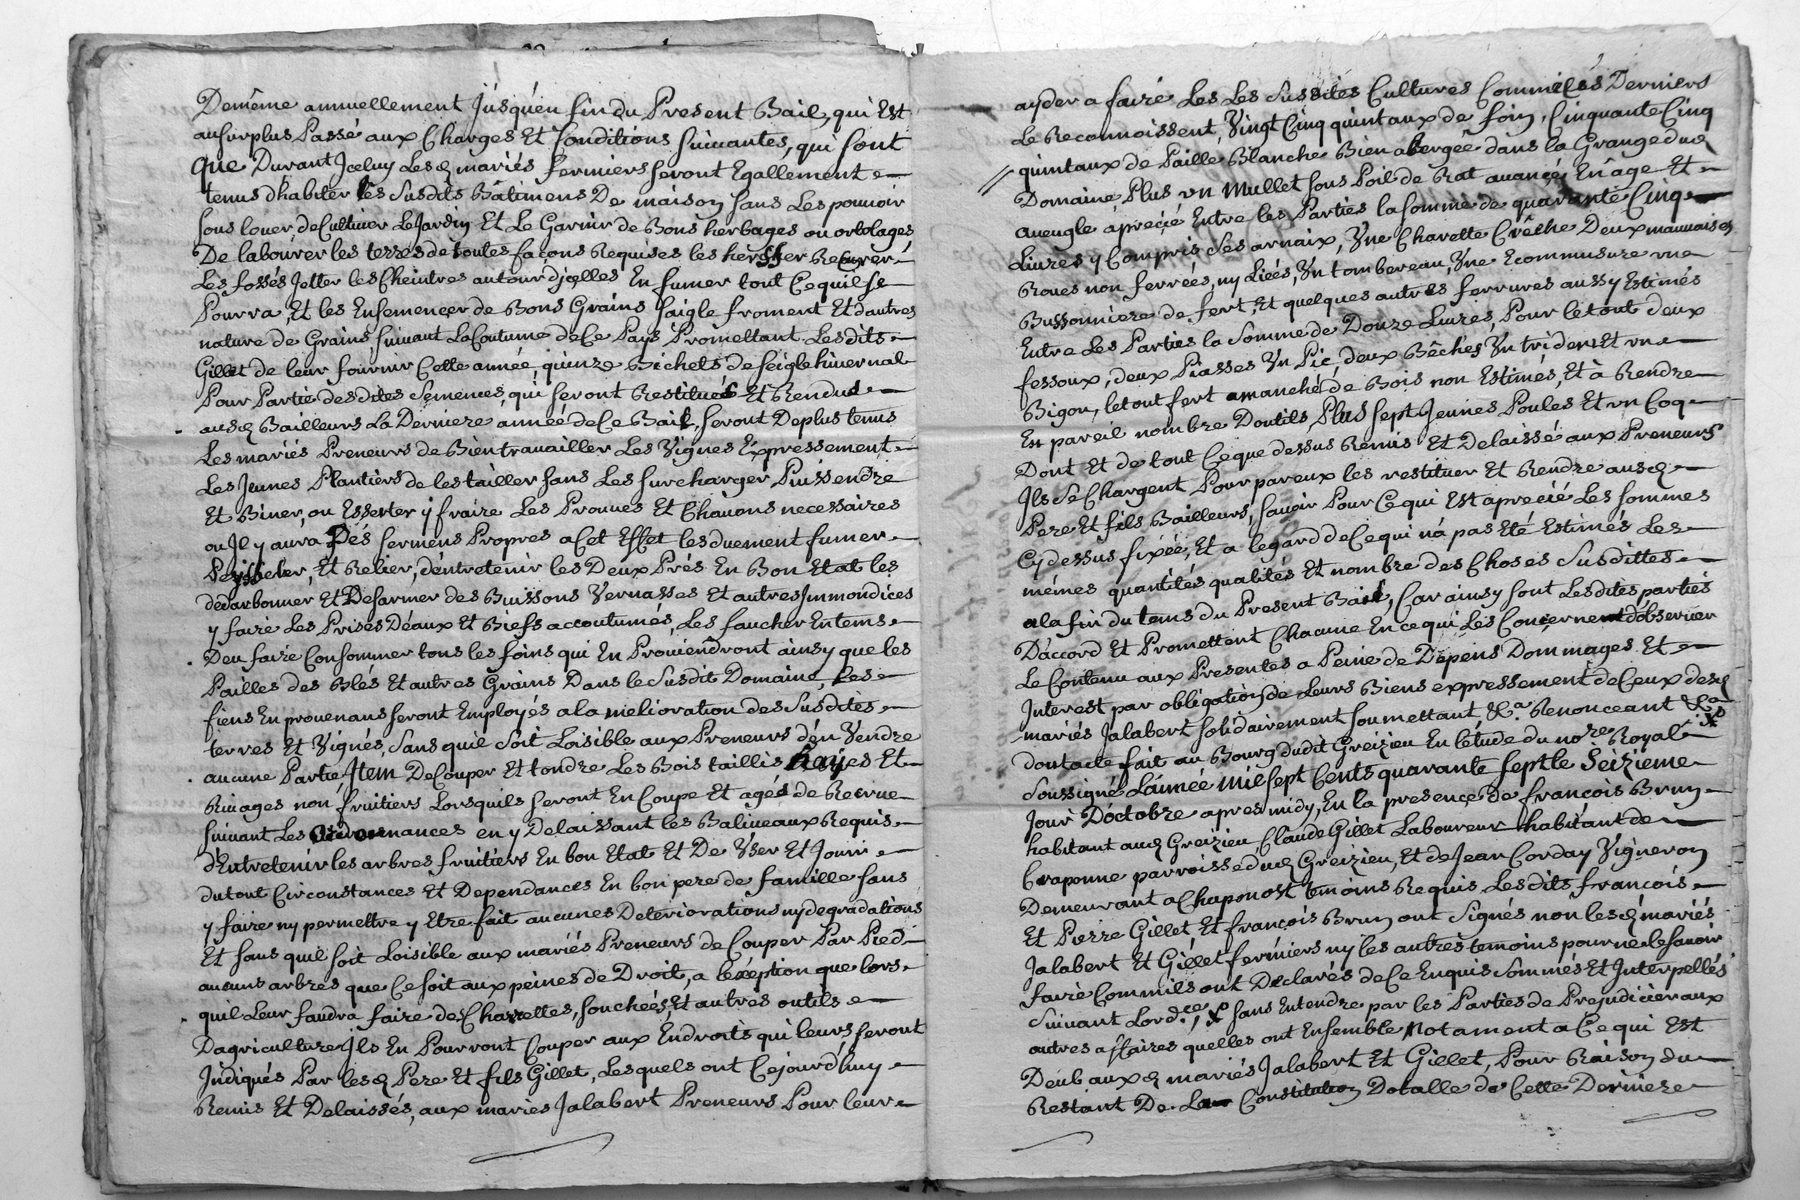 Demême annuellement Jusqu'en fin du Present Bail, qui Est
au surplus Passé aux Charges Et Conditions suivantes, qui sont
que Durant Jceluy Les d mariés fermiers seront Egallement
tenus d'habiter les Susdits Bâtimens De maison sans Les pouvoir
sous louer de Cultiver Le Jardin Et Le Garnir de Bons herbages ou ortolages
De labourer les terres de toutes façons Requises les hersser Recurer
Les fossés Jetter les Cheintres autour d'jcelles En fumer tout Ce quil se
Pourra, Et les Ensemencer de Bons Grains saigle froment Et dautres
nature de Grains suivant La Coutume de Ce Pays Promettant Lesdits
Gillet de leur fournir Cette année, quinze Bichets de seigle hivernal
Pour Partie desdites Semences, qui seront Restitués Et Rendus
aux d Bailleurs La Derniere année de Ce Bail, seront De plus tenus
Les mariés Preneurs de Bien travailler Les Vignes Expressement
Les Jeunes Plantiers de les tailler sans Les surcharger Puissendre
Et Biner, ou Esserter y fraire Les Prouues Et Chavons necessaires
ou Jl y aura Dés sermens Propres a Cet Effet les duement fumer
Peysseler, Et Relier, d'entretenir les Deux Prés En Bon Etat les
dedarbonner Et Desarmer des Buissons Vernasses Et autres Jmmondices
y faire Les Prises D'eaux Et Biefs accoutumés, Les faucher En tems
Deu faire Consommer tous les foins qui En Proviendront ainsy que les
Pailles des Bles Et autres Grains Dans le Susdit Domaine, Les
fiens En provenans seront Employés a la melioration des Susdites
terres Et Vignes, Sans quil Soit Loisible aux Preneurs d'en Vendre
aucune Partie Jtem De Couper Et tondre Les Bois taillis hayes Et
Rivages non fruitiers Lorsquils seront En Coupe Et agés de Recrue
suivant Les ordonnances en y Delaissant les Baliveaux Requis
d'Entretenir les arbres fruitiers En bon Etat Et De Vser Et Jouir
du tout Circonstances Et Dependances En bon pere de famille sans
y faire ny permettre y Etre fait aucunes Deteriorations ny degradations
Et sans quil soit Loisible aux mariés Preneurs de Couper Par Pied
aucuns arbres que Ce soit aux peines de Droit, a l'exéption que lors
quil Leur faudra faire des Charrettes, souchées, Et autres outils
Dagriculture Jls En Pourront Couper aux Endroits qui leurs seront
Jndiqués Par les d Pere Et fils Gillet, Lesquels ont Cejourd'huy
Remis Et Delaissés, aux mariés Jalabert Preneurs Pour leur
ayder a faire Les Les Susdites Cultures Comme Ces Derniers
Le Reconnoissent, Vingt Cinq quintaux de foin, Cinquante Cinq
quintaux de Paille Blanche Bien abergée dans la Grange dud
Domaine Plus vn Mullet sous Poil de Rat avancé En âge Et
aveugle aprecié Entre les Parties la somme de quarante Cinq
Livres y Compris Ses arnaix, Vne Charette Crêche Deux mauvaises
Roues non ferrées, ny Liées, Vn tombereau, Vne Ecommusure vne
Bussonniere de fert, Et quelques autres ferrures aussy Estimés
Entre Les Parties la Somme de Douze Livres, Pour le tout deux
fessoux, deux Piasses Vn Pic, deux Bêches Vn trident Et vn
Bigou, le tout fert amanché de Bois non Estimés, Et à Rendre
En pareil nombre D'outils, Plus sept Jeunes Poules Et vn Coq
Dont Et de tout Ce que dessus Remis Et Delaissé aux Preneurs
Jls Se Chargent Pour par eux les restituer Et Rendre aux d
Pere Et fils Bailleurs, savoir Pour Ce qui Est aprecié Les sommes
Cy dessus fixée, Et a legard de Ce qui n'a pas Eté Estimés Les
mémes quantités qualités Et nombre des Choses Susdittes
a la fin du tems du Present Bail, Car ainsy sont Lesdites parties
D'accord Et Promettent Chacune En ce qui Les Concernent d'observer
Le Contenu aux Presentes a Peine de Dépens Dommages Et
Interest par obligation de Leurs Biens expressement de Ceux desd
mariés Jalabert solidairement soumettant, &a Renonceant &a
dont acte fait au Bourg dudit Greizieu En l'etude du nore Royal
Soussigné L'année mil sept Cents quarante sept le Seizieme
Jour D'octobre apres midy, En la presence de françois Brun
habitant aud Greizieu, Claude Gillet Laboureur habitant de
Craponne parroisse dud Greizieu, Et de Jean Corday Vigneron
Demeurant a Chaponost temoins Requis Lesdits françois
Et Pierre Gillet Et françois Brun ont Signés non les d mariés
Jalabert Et Gillet fermiers ny les autres temoins pour ne le savoir
faire Comm'ils ont Declarés de Ce Enquis Sommés Et Interpellés
Suivant Lordce, sans Entendre par les Parties de Prejudicier aux
autres affaires quelles ont Ensemble Notament a Ce qui Est
Deub aux d mariés Jalabert Et Gillet, Pour Raison du
Restant De La Constitution Dotalle de Cette Derniere